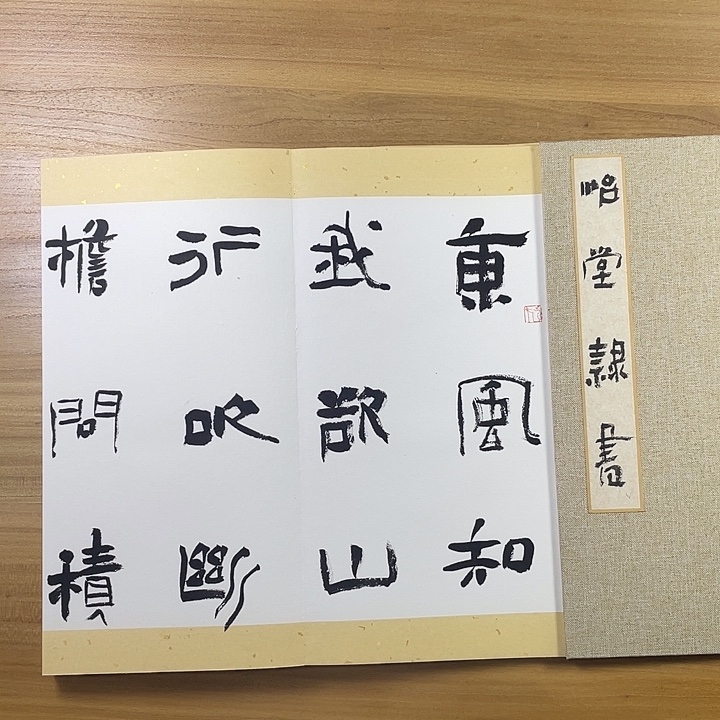 昭堂隸書
東風知
我欲山
行吹斷
檐間積